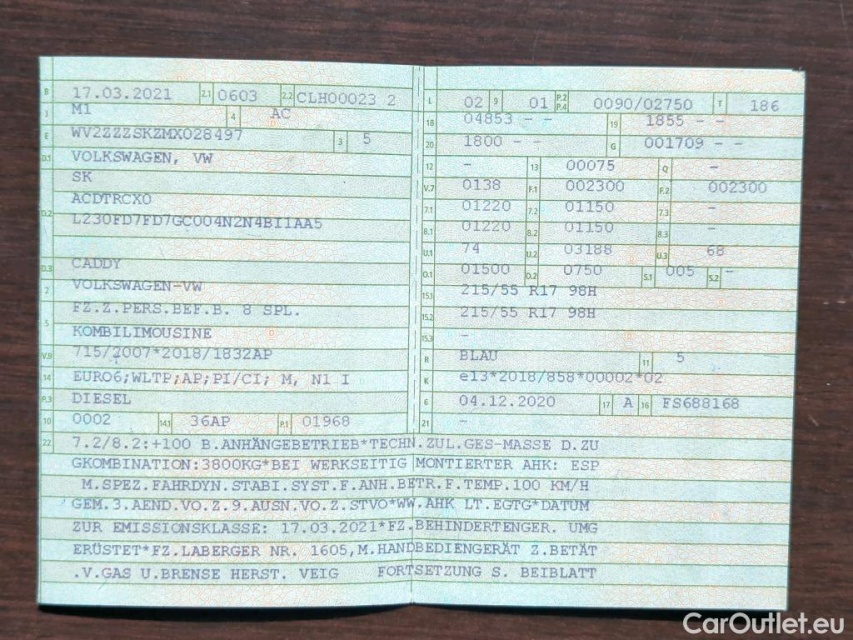 B 17.03.2021 2.1 0603 2.2 CLH00023 2
J M1 4 AC
E WV2ZZZSKZMX028497 3 5
D.1 VOLKSWAGEN, VW
SK
ACDTRCX0
D.2 L230FD7FD7GC004N2N4BI1AA5
D.3 CADDY
2 VOLKSWAGEN-VW
FZ.Z.PERS.BEF.B. 8 SPL.
5 KOMBILIMOUSINE
V.9 715/2007*2018/1832AP
14 EURO6;WLTP;AP;PI/CI; M, N1 I
P.3 DIESEL
10 0002 14.1 36AP P.1 01968
L 02 9 01 P.2 P.4 0090/02750 T 186
18 04853 - - 19 1855 - -
20 1800 - - G 001709 - -
12 - 13 00075 Q -
V.7 0138 F.1 002300 F.2 002300
7.1 01220 7.2 01150 7.3 -
8.1 01220 8.2 01150 8.3 -
U.1 74 U.2 03188 U.3 68
O.1 01500 O.2 0750 S.1 005 S.2 -
15.1 215/55 R17 98H
15.2 215/55 R17 98H
15.3 -
R BLAU 11 5
K e13*2018/858*00002*02
6 04.12.2020 17 A 16 FS688168
21 -
22 7.2/8.2:+100 B.ANHÄNGEBETRIEB*TECHN.ZUL.GES-MASSE D.ZU
GKOMBINATION:3800KG*BEI WERKSEITIG MONTIERTER AHK: ESP
M.SPEZ.FAHRDYN.STABI.SYST.F.ANH.BETR.F.TEMP.100 KM/H
GEM.3.AEND.VO.Z.9.AUSN.VO.Z.STVO*WW.AHK LT.EGTG*DATUM
ZUR EMISSIONSKLASSE: 17.03.2021*FZ.BEHINDERTENGER. UMG
ERÜSTET*FZ.LABERGER NR. 1605,M.HANDBEDIENGERÄT Z.BETÄT
.V.GAS U.BRENSE HERST. VEIG FORTSETZUNG S. BEIBLATT
CarOutlet.eu